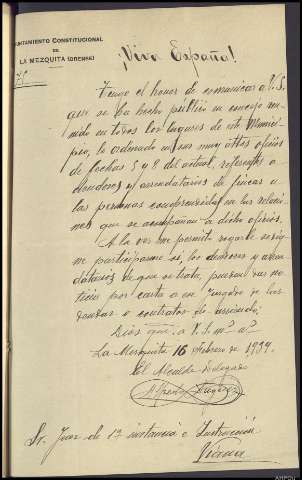 AYUNTAMIENTO CONSTITUCIONAL
DE
LA MEZQUITA (ORENSE)
¡Viva España!
Tengo el honor de comunicar a V.S.
que se ha hecho público en
en todos los lugares de este Munici-
pio, lo ordenado en sus muy attos oficios
de fechas 5 y 8 del actual, referentes a
deudores y arrendatarios de fincas a
las personas comprendidas en las relacio-
nes que se acompañan a dicho oficios.
A la vez me permito rogarle se dig-
ne participarme si los deudores y arren-
datarios de que se trata, puedan dar no-
ticia por carta a ese Juzgado de sus
deudas o contratos de arriendo.
Dios gue. a V.S. ms. as.
La Mezquita 16 Febrero de 1939.
El Alcalde
Alfredo
Sr. Juez de 1ª instancia e Instrucción
Viana